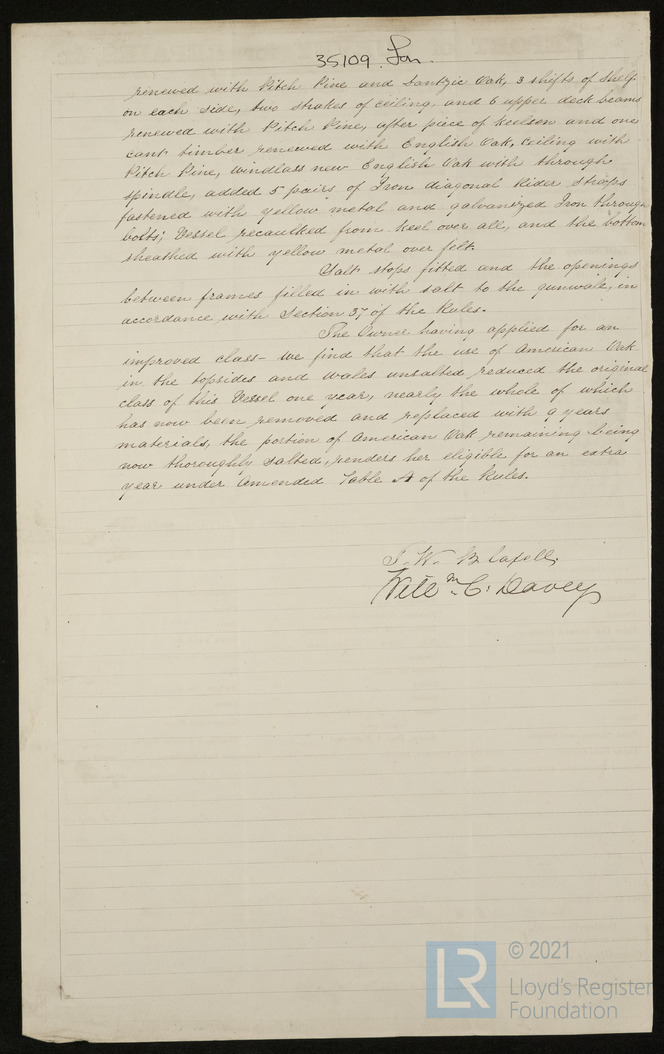 35109 Lon.
renewed with Pitch Pine and Dantzic Oak, 3 shifts of shelf
on each side, two strakes of ceiling, and 6 upper deck beams
renewed with Pitch Pine, after piece of keelson and one
cant timber renewed with English Oak, ceiling with
Pitch Pine, windlass new English Oak with through
spindle, added 5 pairs of Iron diagonal Rider Straps
fastened with yellow metal and galvanized Iron through
bolts; Vessel recaulked from keel over all, and the bottom
sheathed with yellow metal over felt.
Salt stops fitted and the openings
between frames filled in with salt to the gunwale, in
accordance with Section 37 of the Rules.
The Owner having applied for an
improved class - we find that the use of American Oak
in the topsides and wales unsalted, reduced the original
class of this Vessel one year, nearly the whole of which
has now been removed and replaced with 9 years
materials, the portion of American Oak remaining being
now thoroughly salted, renders her eligible for an extra
year under Amended Table A of the Rules.
T. W.
C. Davey
© 2021
LR
Lloyd's Register
Foundation